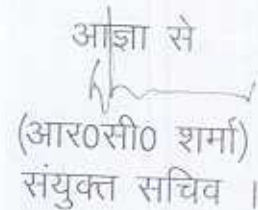 आज्ञा से
(आर0सी0 शर्मा)
संयुक्त सचिव ।